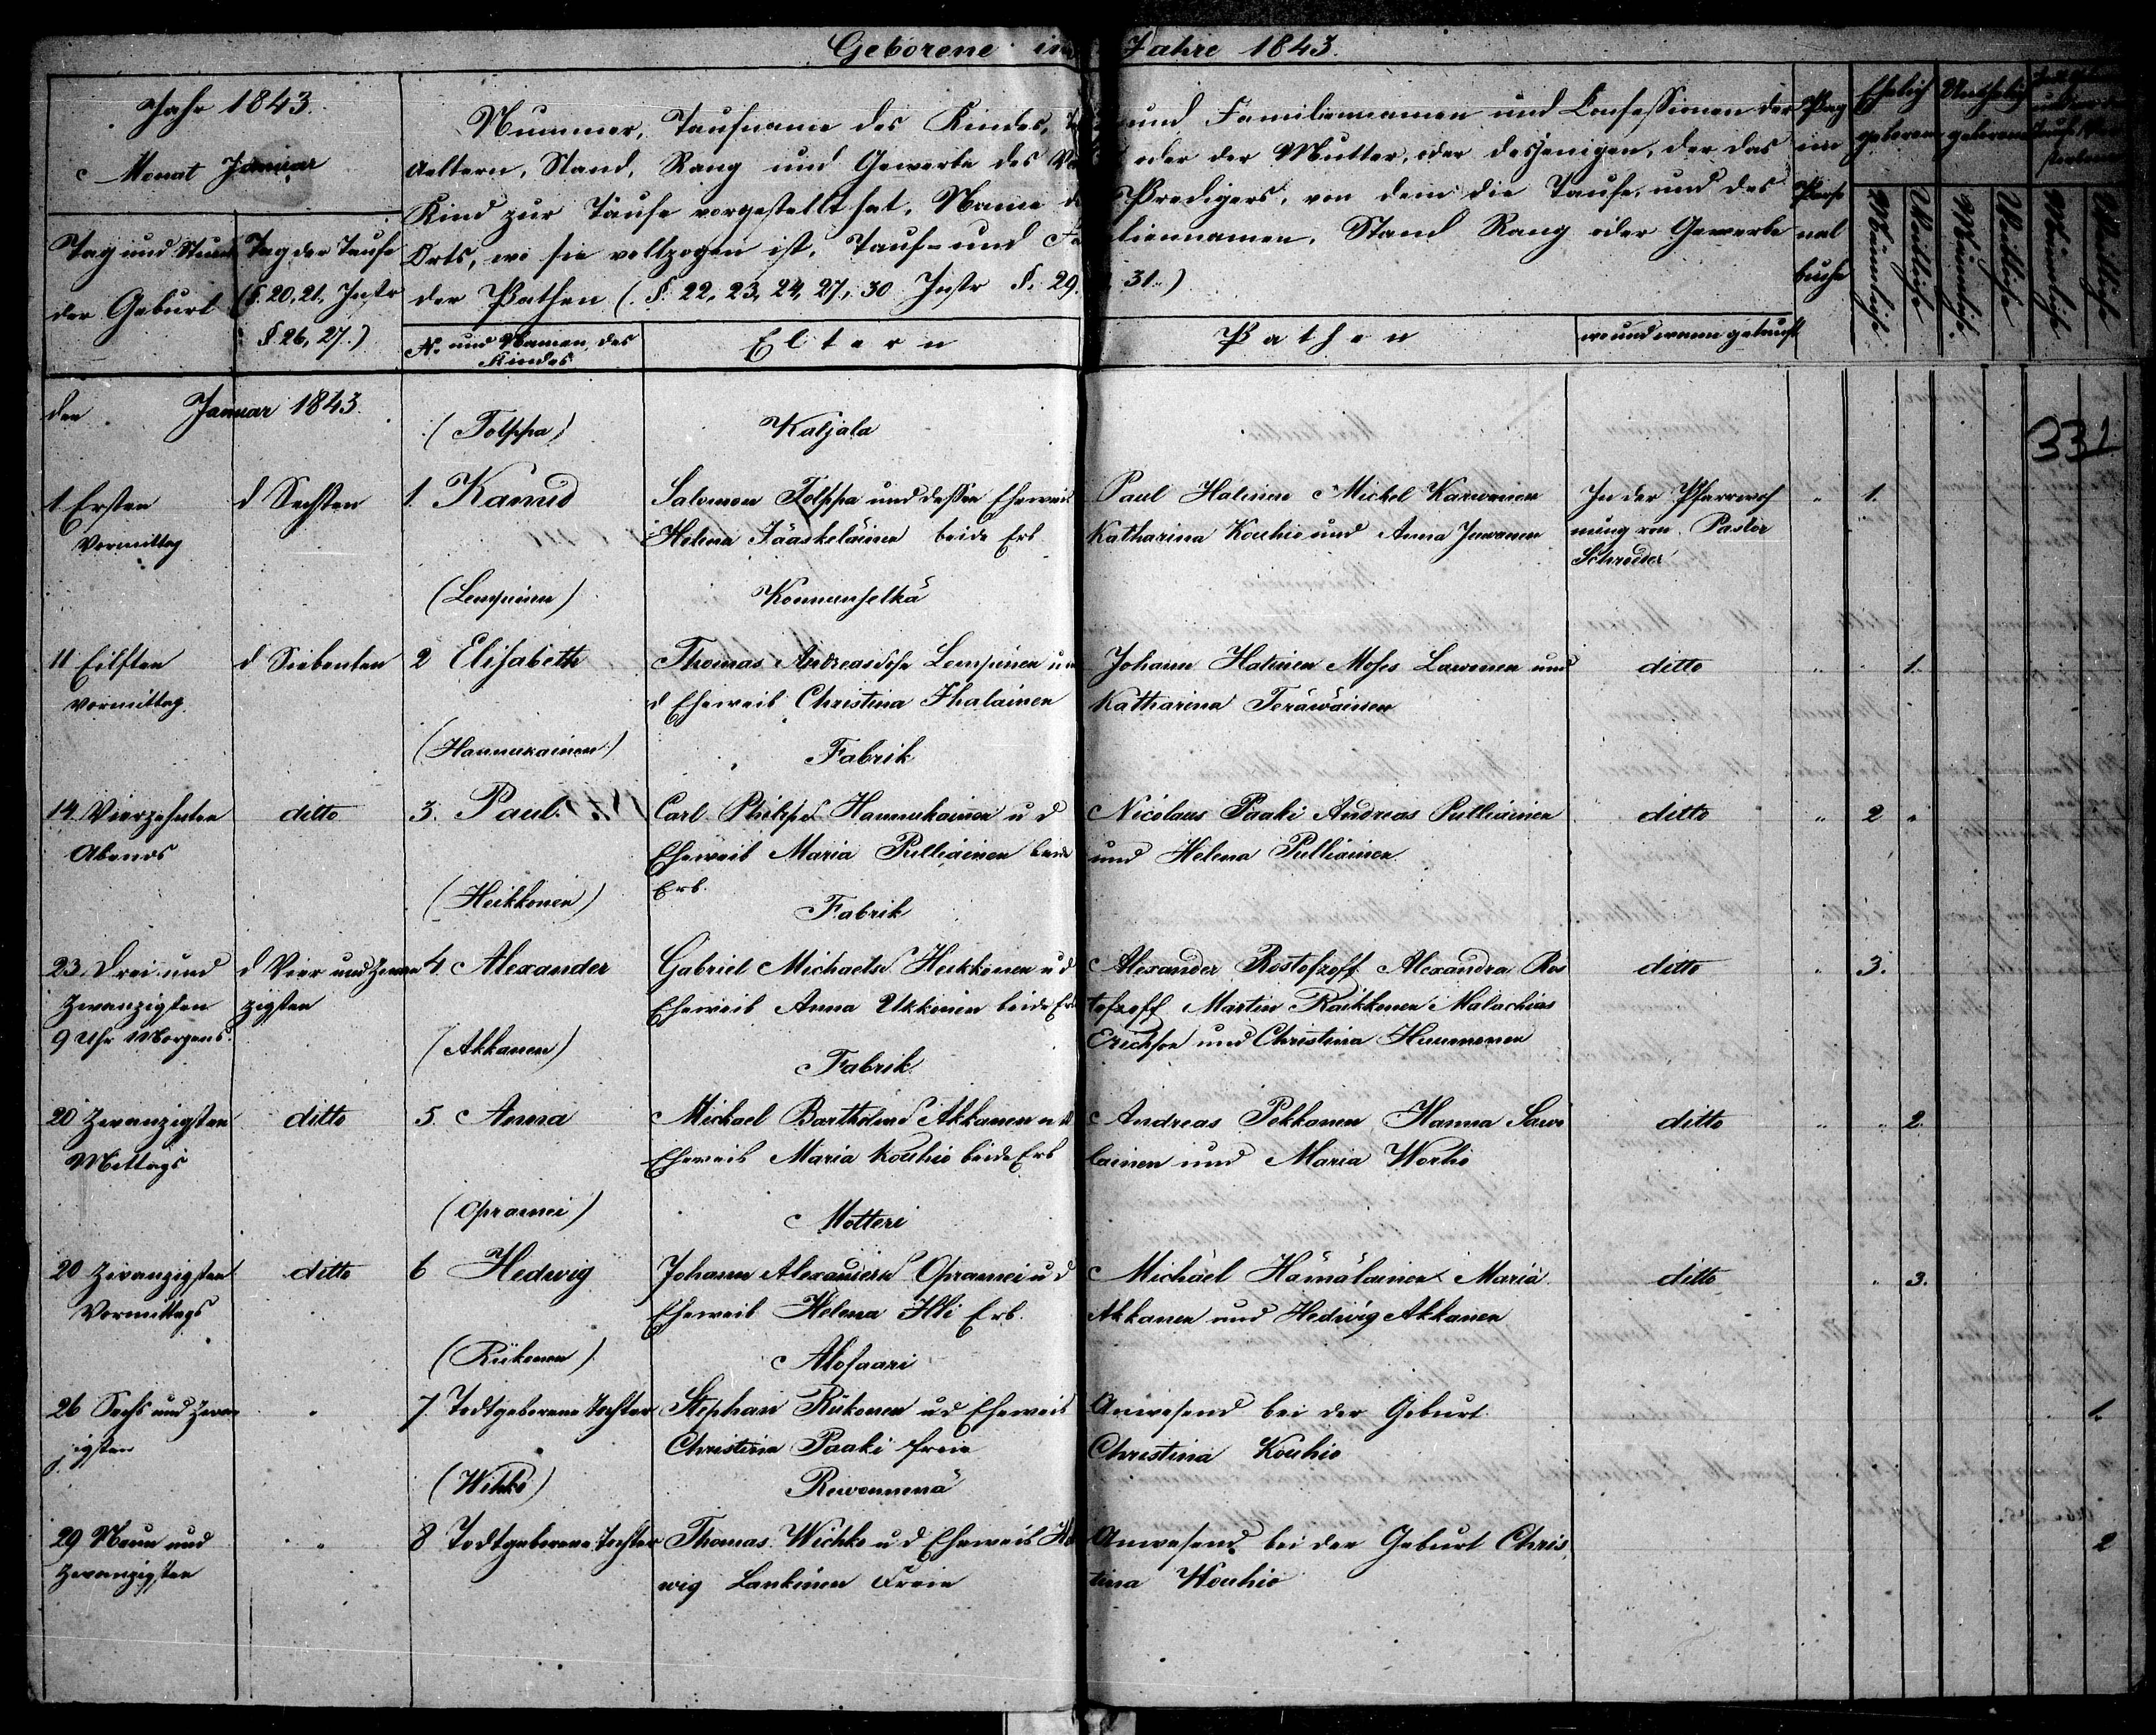 Geborene im Jahre 1843.
Jahr 1843.
Monat Januar
Tag und Stunde
der Geburt
Tag der Taufe
(§. 20, 21, Instr
§ 26, 27.)
Nummer, Taufname des Kindes, und Familiennamen und Confessionen der
Aeltern, Stand, Rang und Gewerbe des oder der Mutter, oder desjenigen, der das
Kind zur Taufe vorgestellt hat, Name d Predigers, von dem die Taufe, und des
Orts, wo sie vollzogen ist, Tauf- und Familiennamen, Stand Rang oder Gewerbe
der Pathen (. §. 22, 23, 24, 27, 30 Instr §. 29. 31.)
Pag
im
Perso
nal
buche
Ehelich
geborene
Unehelig
geborene
Männliche
Weibliche
Männliche
Weibliche
Männliche
Weibliche
N. und Namen des
Kindes
Eltern
Pathen
wo und wann getauft
den Januar 1843.
331
(Tolppa)
Kaljala
1 Ersten
Vormittag
d Sechsten
1.
Salomon Tolppa und dessen Eheweib
Helena Jääskeläinen beide Erb
Paul Halinen Michel Karwonen
Katharina Kouhio und Anna Juwonen
In der Pfarrwoh
nung von Pastor
Schröder
1.
(Lempinen)
Konnunselkä
11 Eilften
Vormittag
d Siebenten
2 Elisabeth
Thomas Andreassohn Lempinen u
d Eheweib Christina Ihalainen
Johann Halinen Moses Lawonen und
Katharina Teräwäinen
ditto
1.
(Hannukainen)
Fabrik
14. Vierzehnten
Abends
ditto
3. Paul.
Carl Philips Hannukainen u d
Eheweib Maria Pulliainen beide
Erb.
Nicolaus Paaki Andreas Pulliainen
und Helena Pulliainen
ditto
2
(Heikkonen)
Fabrik
23. Drei und
Zwanzigsten
9 Uhr Morgens.
d Vier und Zwan
zigsten
4. Alexander
Gabriel Michaels Heikkonen u d
Eheweib Anna Ukkonen beide Erb
Alexander Rostofzoff Alexandra Ros
tofzoff Martin Räikkonen Malachias
Erichson und Christina Hummonen
ditto
3.
(Akkanen)
Fabrik
20 Zwanzigsten
Mittags
ditto
5. Anna
Michael Bartholms Akkanen u d
Eheweib Maria Kouhio beide Erb
Andreas Pekkanen Hanna Sawo
lainen und Maria Worho
ditto
2.
(Opramei)
Motteri
20 Zwanzigsten
Vormittags
ditto
6 Hedwig
Johann Alexanders Opramei u d
Eheweib Helena Illi Erb.
Michäel Hämäläinen Maria
Akkanen und Hedwig Akkanen
ditto
3.
(Riikonen)
Alosaari
26 Sechs und Zwan
zigsten
7. Todtgeborene Tochter
Stephan Riikonen u d Eheweib
Christina Paaki freie
Anwesend bei der Geburt
Christina Kouhio
1.
(Wihko)
Rewonnenä
29 Neun und
Zwanzigsten
8 Todtgeborene Tochter
Thomas Wichko u d Eheweib Hed
wig Lankinen Freie
Anwesend bei der Geburt Chris
tina Kouhio
2